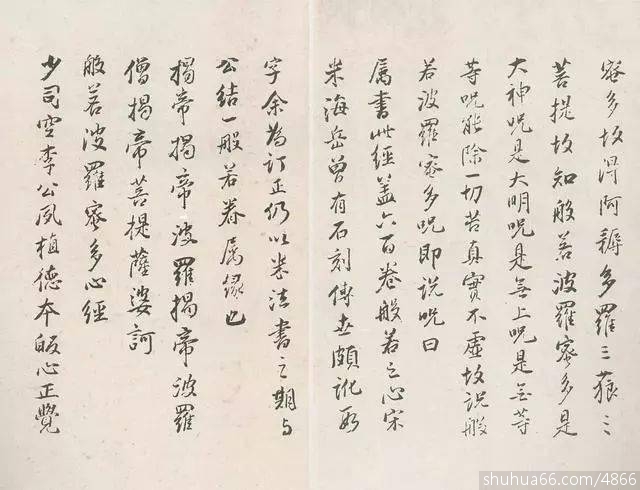 密多故得阿耨多羅三藐三
菩提故知般若波羅密多是
大神呪是大明呪是無上呪是無等
等呪能除一切苦真實不虛故說般
若波羅密多呪即說呪曰
属書此經蓋六百卷般若之心宋
米海岳曾有石刻傳世頗訛數
字余為訂正仍以米法書之期与
公結一般若眷属緣也
揭帝揭帝波羅揭帝波羅
僧揭帝菩提薩婆訶
般若波羅密多心經
少司空李公夙植德本皈心正覺
shuhua66.com/4866